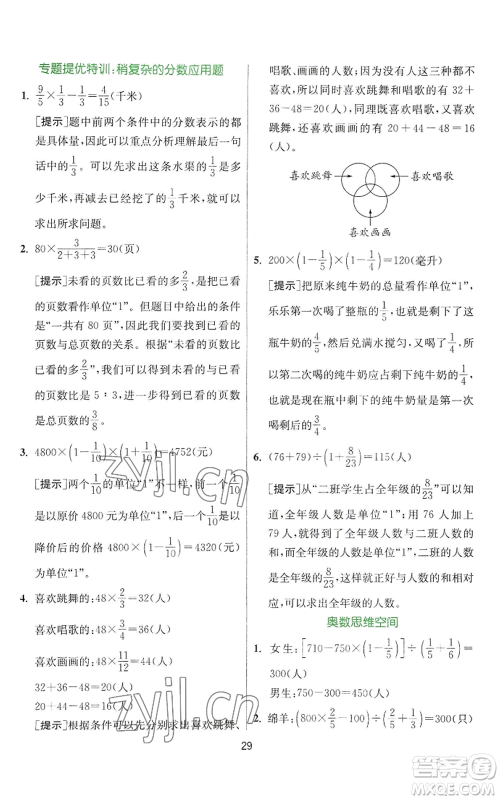 专题提优特训:稍复杂的分数应用题
1. 9/5×1/3−1/3=4/15(千米)
[提示]题中前两个条件中的分数表示的都
是具体量,因此可以重点分析理解最后一句
话中的1/3。可以先求出这条水渠的1/3是
多少千米,再减去已经挖的1/3千米,就可
以求出所求问题。
2. 80×3/(2+3+3)=30(页)
[提示]未看的页数比已看的多2/3,是把已
看的页数看作单位“1”。但题目给出的条件
是“一共有 80 页”,因此我们要找到已看页
数与总页数的关系。根据“未看的页数比已
看的多2/3”,我们可以先求出未看的页数与
已看的页数的比是 5∶3,进而求出已看的是
总页数的3/8。
3. 4800×(1−1/10)×(1+1/10)=4752(元)
[提示]两个1/10的单位“1”不同,前一个1/10
是以原价 4800 元为单位“1”,后一个1/10是以
降价后的价格 4800×(1−1/10)=4320(元)
为单位“1”。
4. 喜欢跳舞的:48×2/3=32(人)
喜欢唱歌的:48×3/4=36(人)
喜欢画画的:48×11/12=44(人)
32+36−48=20(人)
20+44−48=16(人)
[提示]根据条件可以先分别求出喜欢跳舞、
唱歌、画画的人数;因为三种活动都不
喜欢,所以喜欢跳舞又喜欢唱歌的有 32+
36−48=20(人),同理既喜欢唱歌,又喜欢
跳舞,还喜欢画画的有 20+44−48=16
(人)。
喜欢跳舞
喜欢唱歌
喜欢画画
5. 200×(1−1/5)×(1−1/4)=120(毫升)
[提示]把原来纯牛奶的总量看作单位“1”,
乐乐第一次喝了整瓶的1/5,剩下的是这
瓶牛奶的4/5,然后兑满水搅匀,又喝了1/4,所
以第二次喝的纯牛奶应占剩下纯牛奶的1/4,
现在在瓶中纯牛奶占整瓶的3/5。
6. (76+79)÷(1+8/23)=115(人)
[提示]从“二班学生占全年级的8/23”可以知
道,全年级人数是单位“1”;用 76 人加上
79 人,就得到了全年级人数与二班人数的
和,全年级人数是单位“1”,二班的人数是
全年级的8/23,这样就可以求出全年级的人数。
奥数思维空间
1. 女生:[710−750×(1−1/5)]÷(1/5+1/6)=
300(人)
男生:750−300=450(人)
2. 绵羊:(800×2/5−100)÷(2/5+1/3)=300(只)
29
zyjl.cn
zyjl.cn